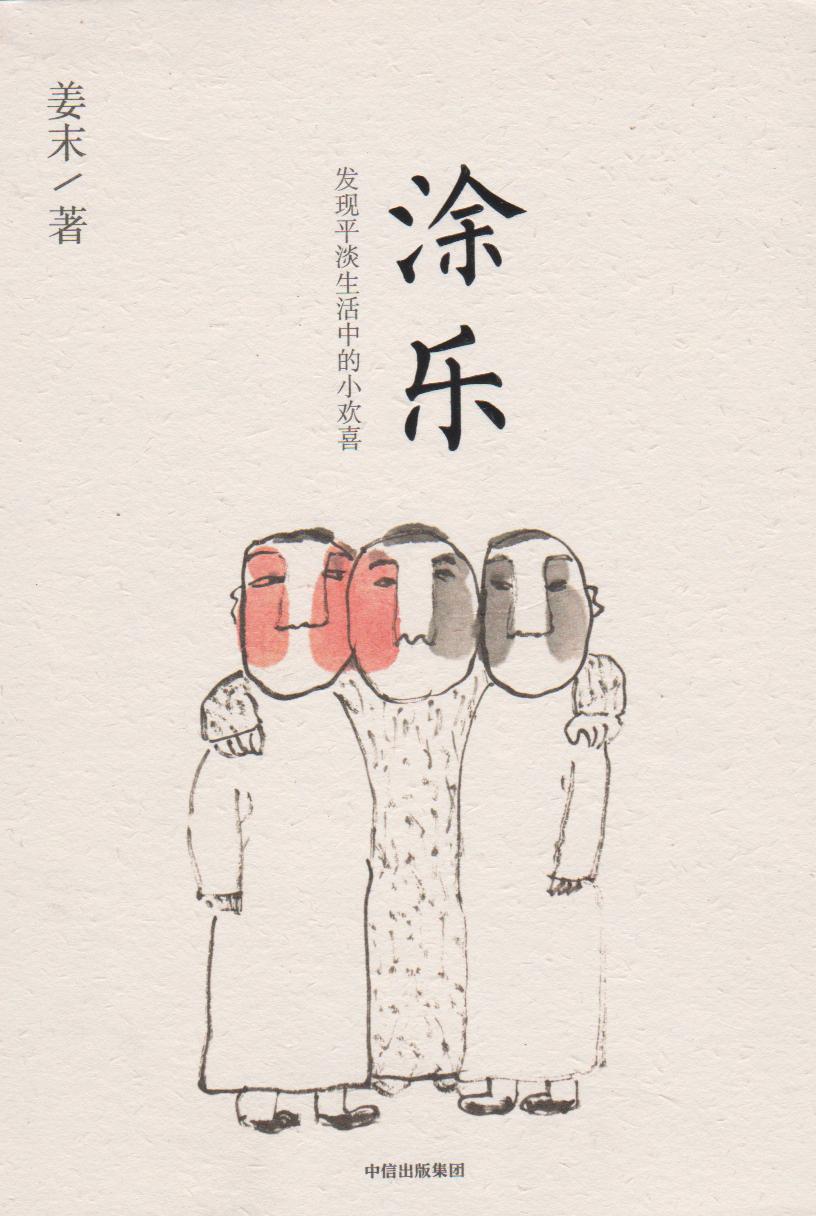 姜末／著
涂乐
发现平淡生活中的小欢喜
中信出版集团